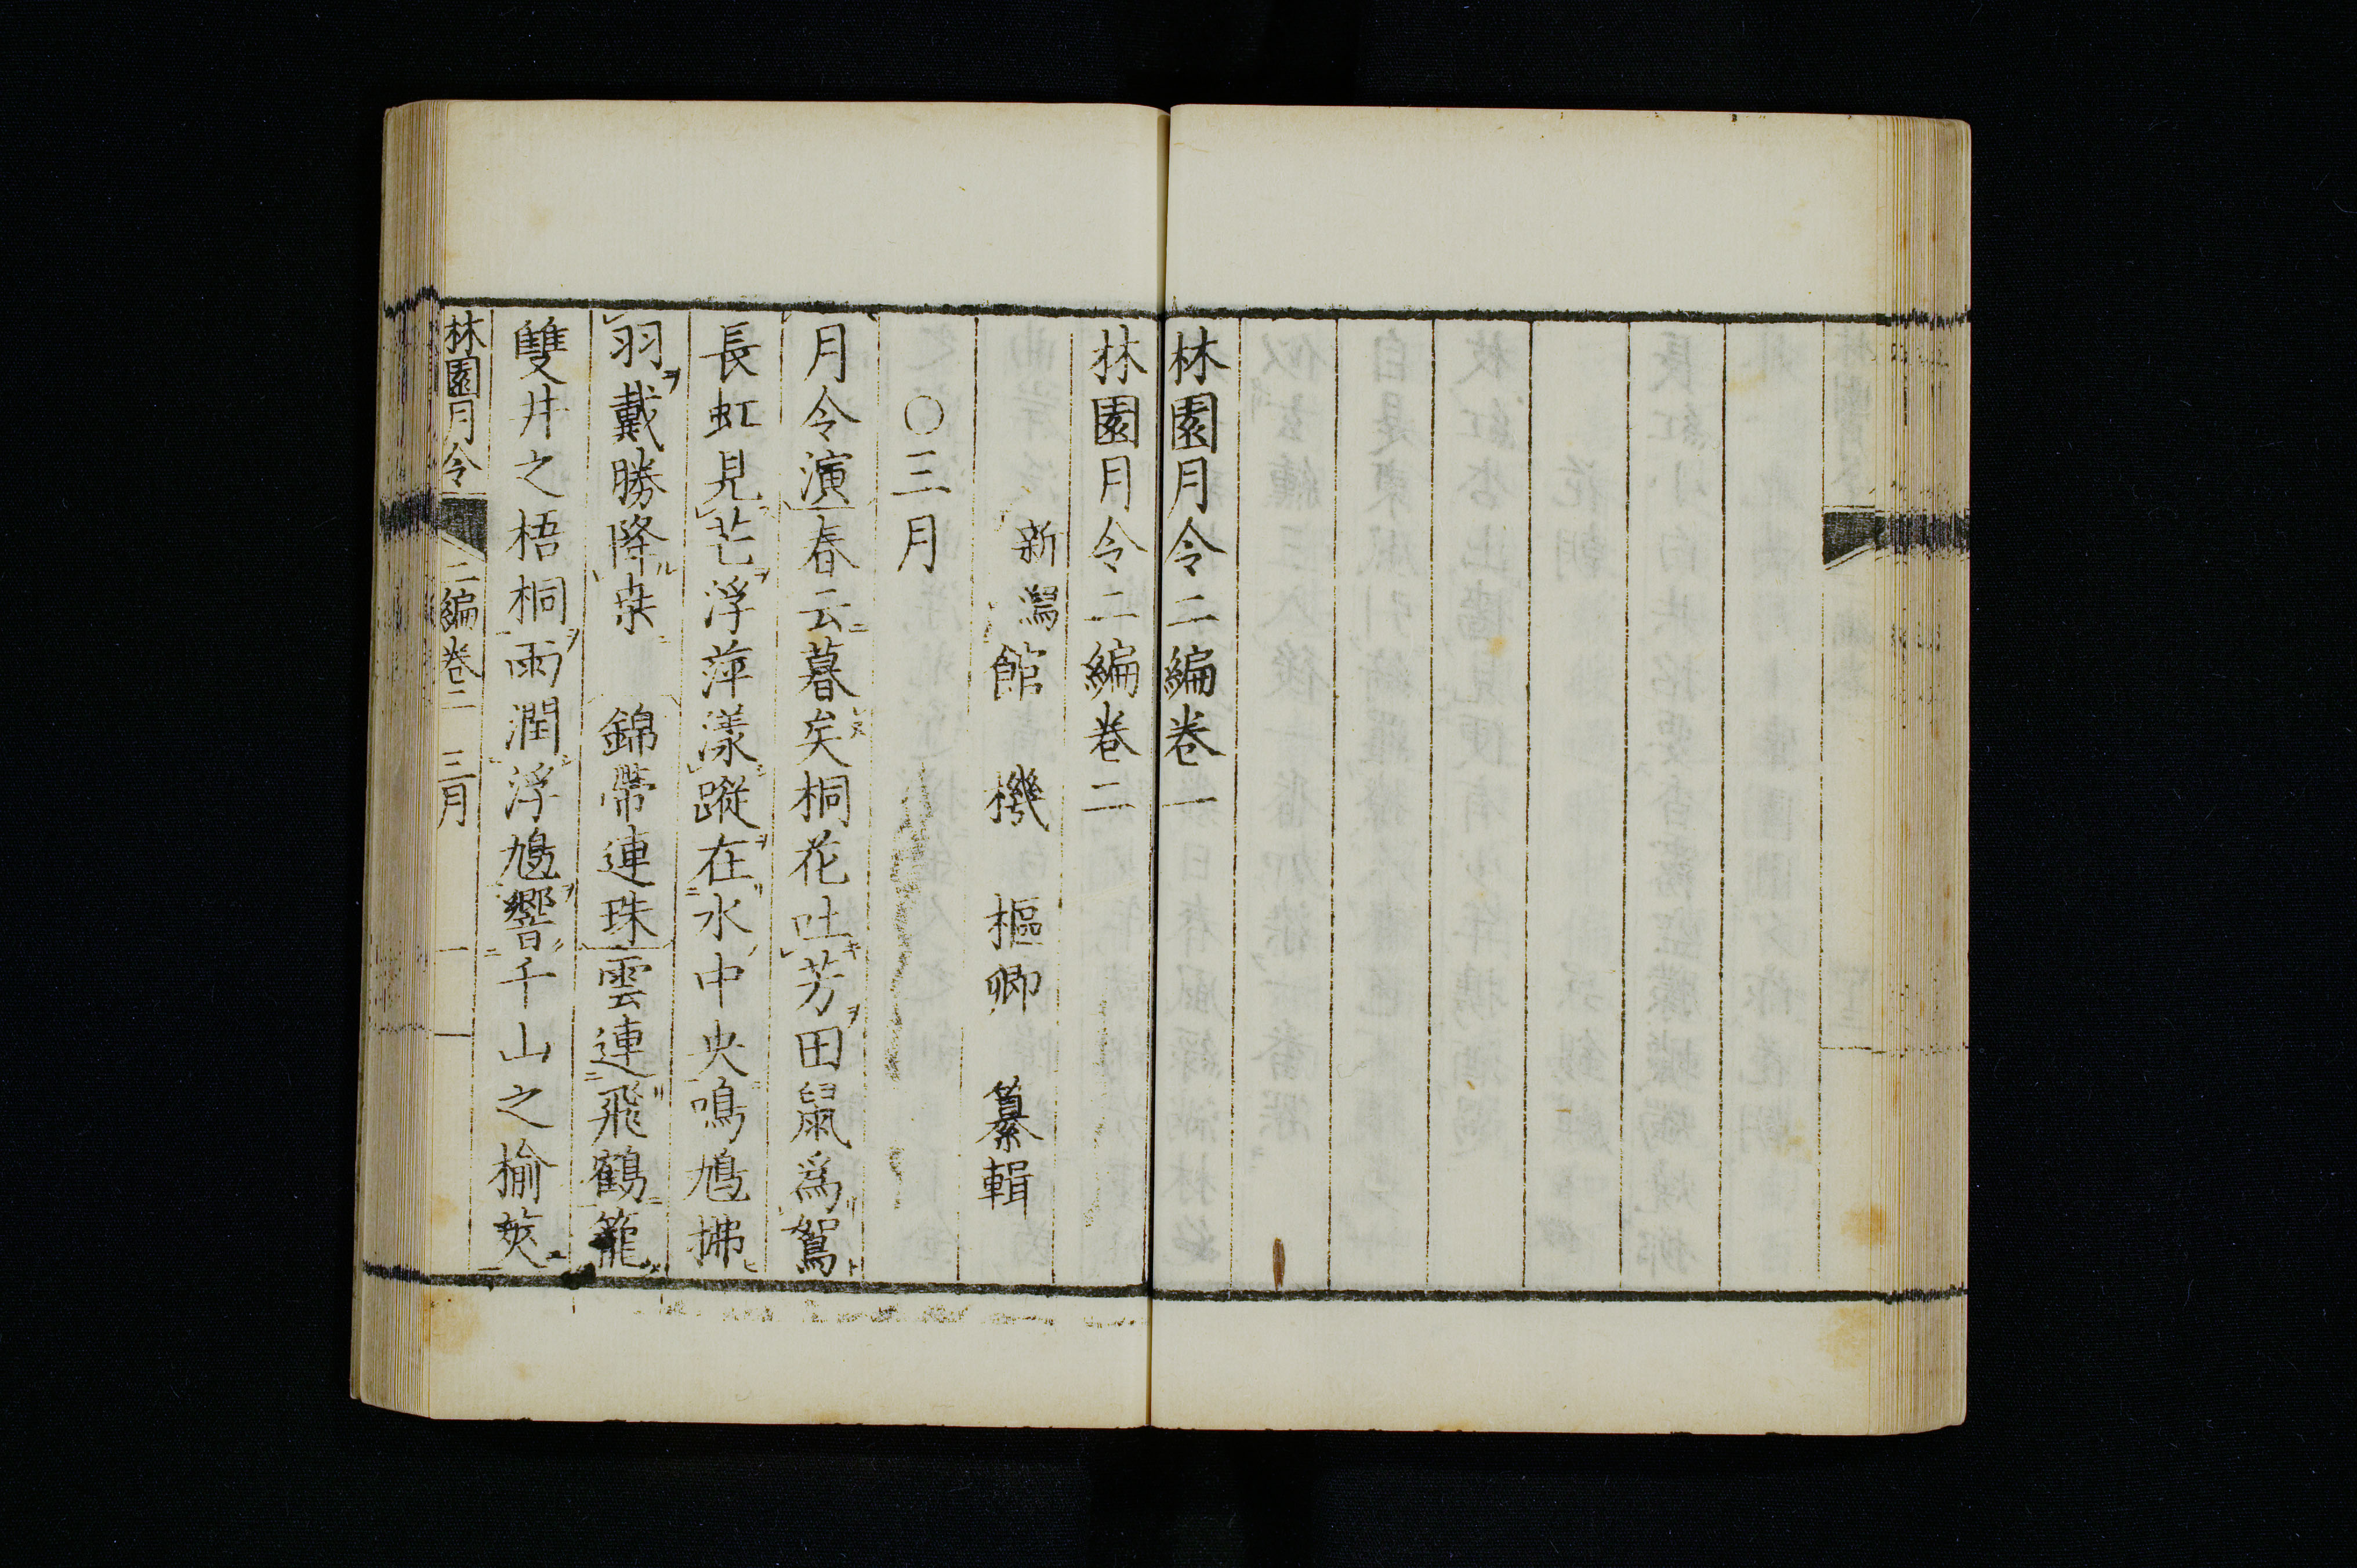 林園月令二編卷一
林園月令二編卷二
新潟 館 機 樞卿 纂輯
○三月
月令演春云暮矣桐花吐芳田鼠爲鴽
長虹見芒浮萍漾蹤在水中央鳴鳩拂
羽戴勝降桒 錦帶連珠雲連飛鶴籠
雙井之梧桐雨潤浮鳩響千山之榆莢
林園月令 二編卷二 三月 一